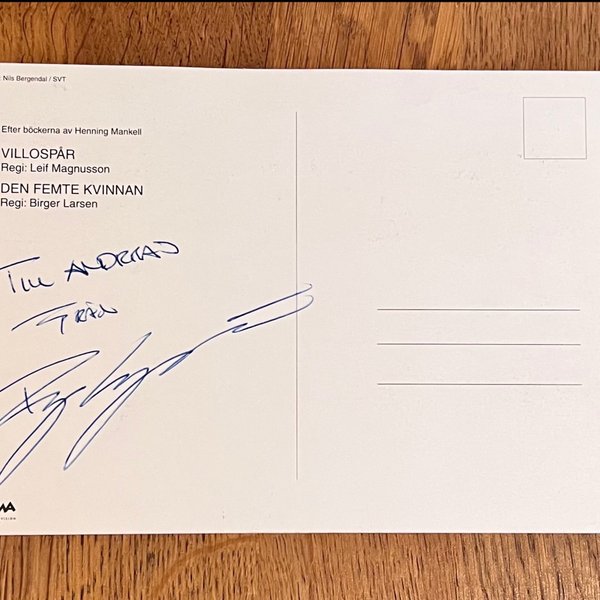 Nils Bergendal / SVT
Efter böckerna av Henning Mankell
VILLOSPÅR
Regi: Leif Magnusson
DEN FEMTE KVINNAN
Regi: Birger Larsen
TILL ANDREAS
FRÅN
MA